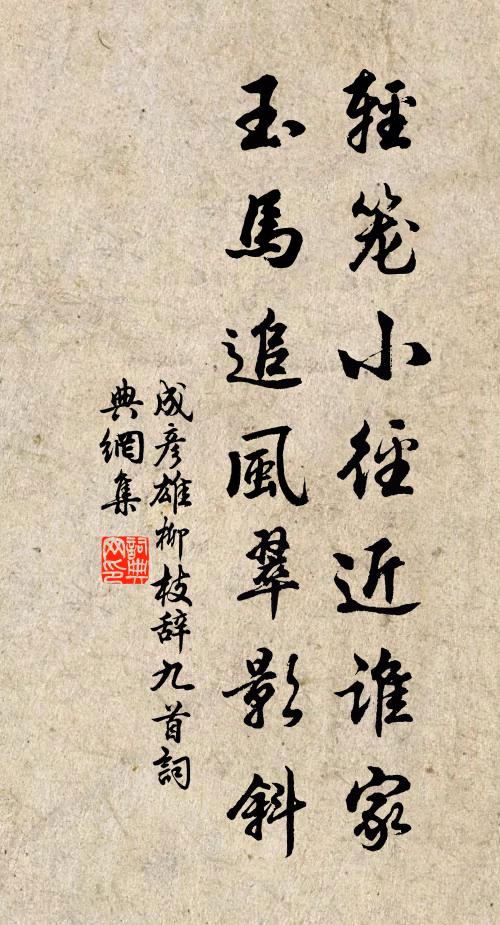 輕笼小徑近誰家
玉馬追風翠影斜
成彦雄柳枝辞九首詞
典網集
詞典
网印